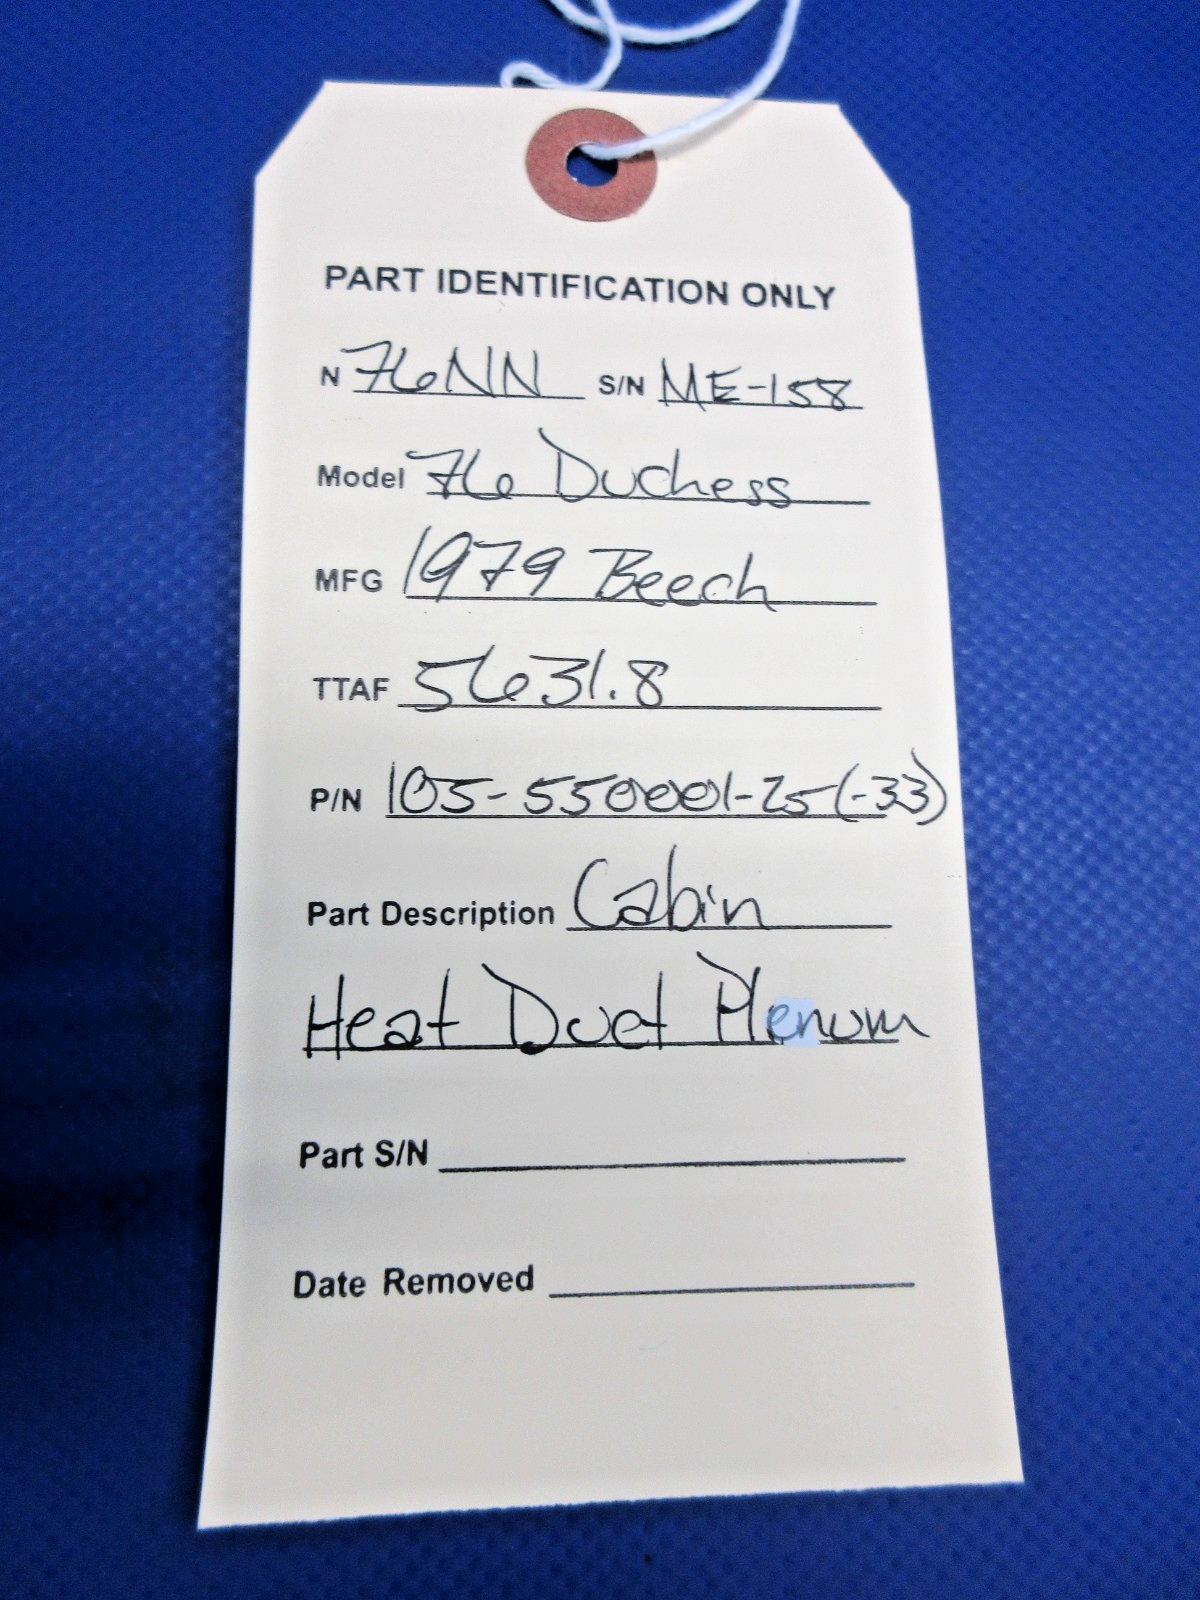 PART IDENTIFICATION ONLY
N 76NN S/N ME-158
Model 76 Duchess
MFG 1979 Beech
TTAF 5631.8
P/N 105-550001-25(-33)
Part Description Cabin
Heat Duct Plenum
Part S/N
Date Removed